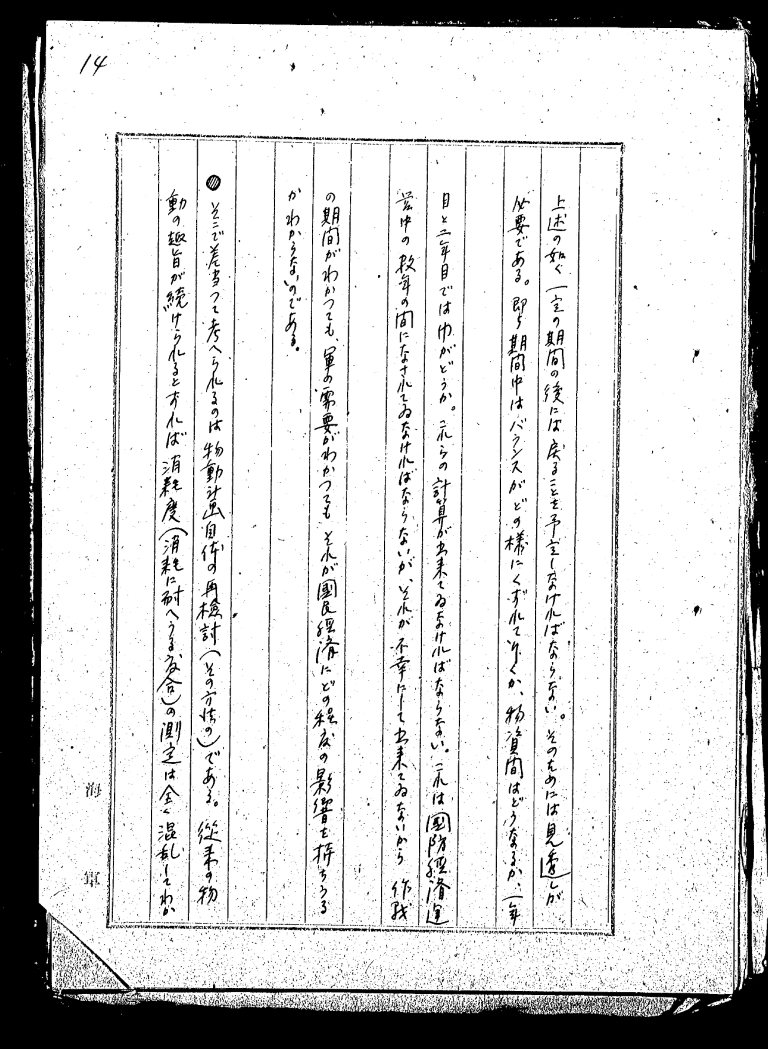 14
上述の如く一定の期間の後には戻ることを予定しなければならない。そのためには見透しが
必要である。即ち期間中はバランスがどの様にくずれて行くか、物資間はどうなるか、一年
目と二年目では巾がどうか。これらの計算が出来てゐなければならない。これは国防経済運
営中の数年の間になされてゐなければならないが、それが不幸にして出来てゐないから作戦
の期間がわかつても、軍の需要がわかつても、それが國民経済にどの程度の影響を持ちうる
かわからないのである。
そこで差当つて考へられるのは物動計画自体の再検討(その方法の)である。従来の物
動の趣旨が続けられるとすれば消耗度(消耗に耐へうる度合)の測定は全く混乱してわか
海軍